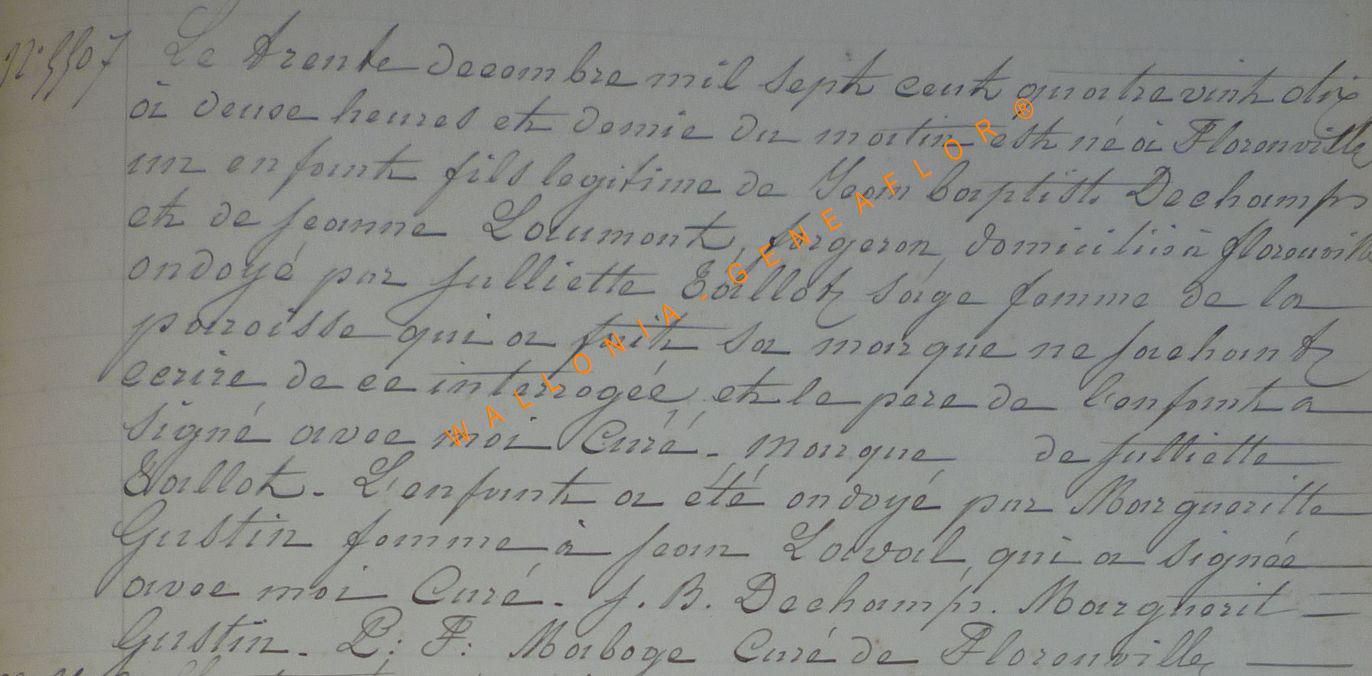 N° 5507 Le trente decembre mil sept cent quatrevint dix
à deuse heures et demie du matin est né à Florenville
un enfant fils legitime de Jean baptist. Dechamps
et de jeanne Laumont, forgeron, domiciliés à florenville
ondoyé par julliette Tallot sage femme de la
paroisse qui a fait sa marque ne sachant
ecrire de ce interrogée et le pere de l'enfant a
signé avec moi Curé. Marque de julliette
Tallot. L'enfant a été ondoyé par Margueritte
Gustin femme à jean Laval, qui a signée
avec moi Curé. J. B. Dechamps. Marguerit
Gustin. P: F: Maboge Curé de Florenville
WALLONIA.GENEAFLOR®